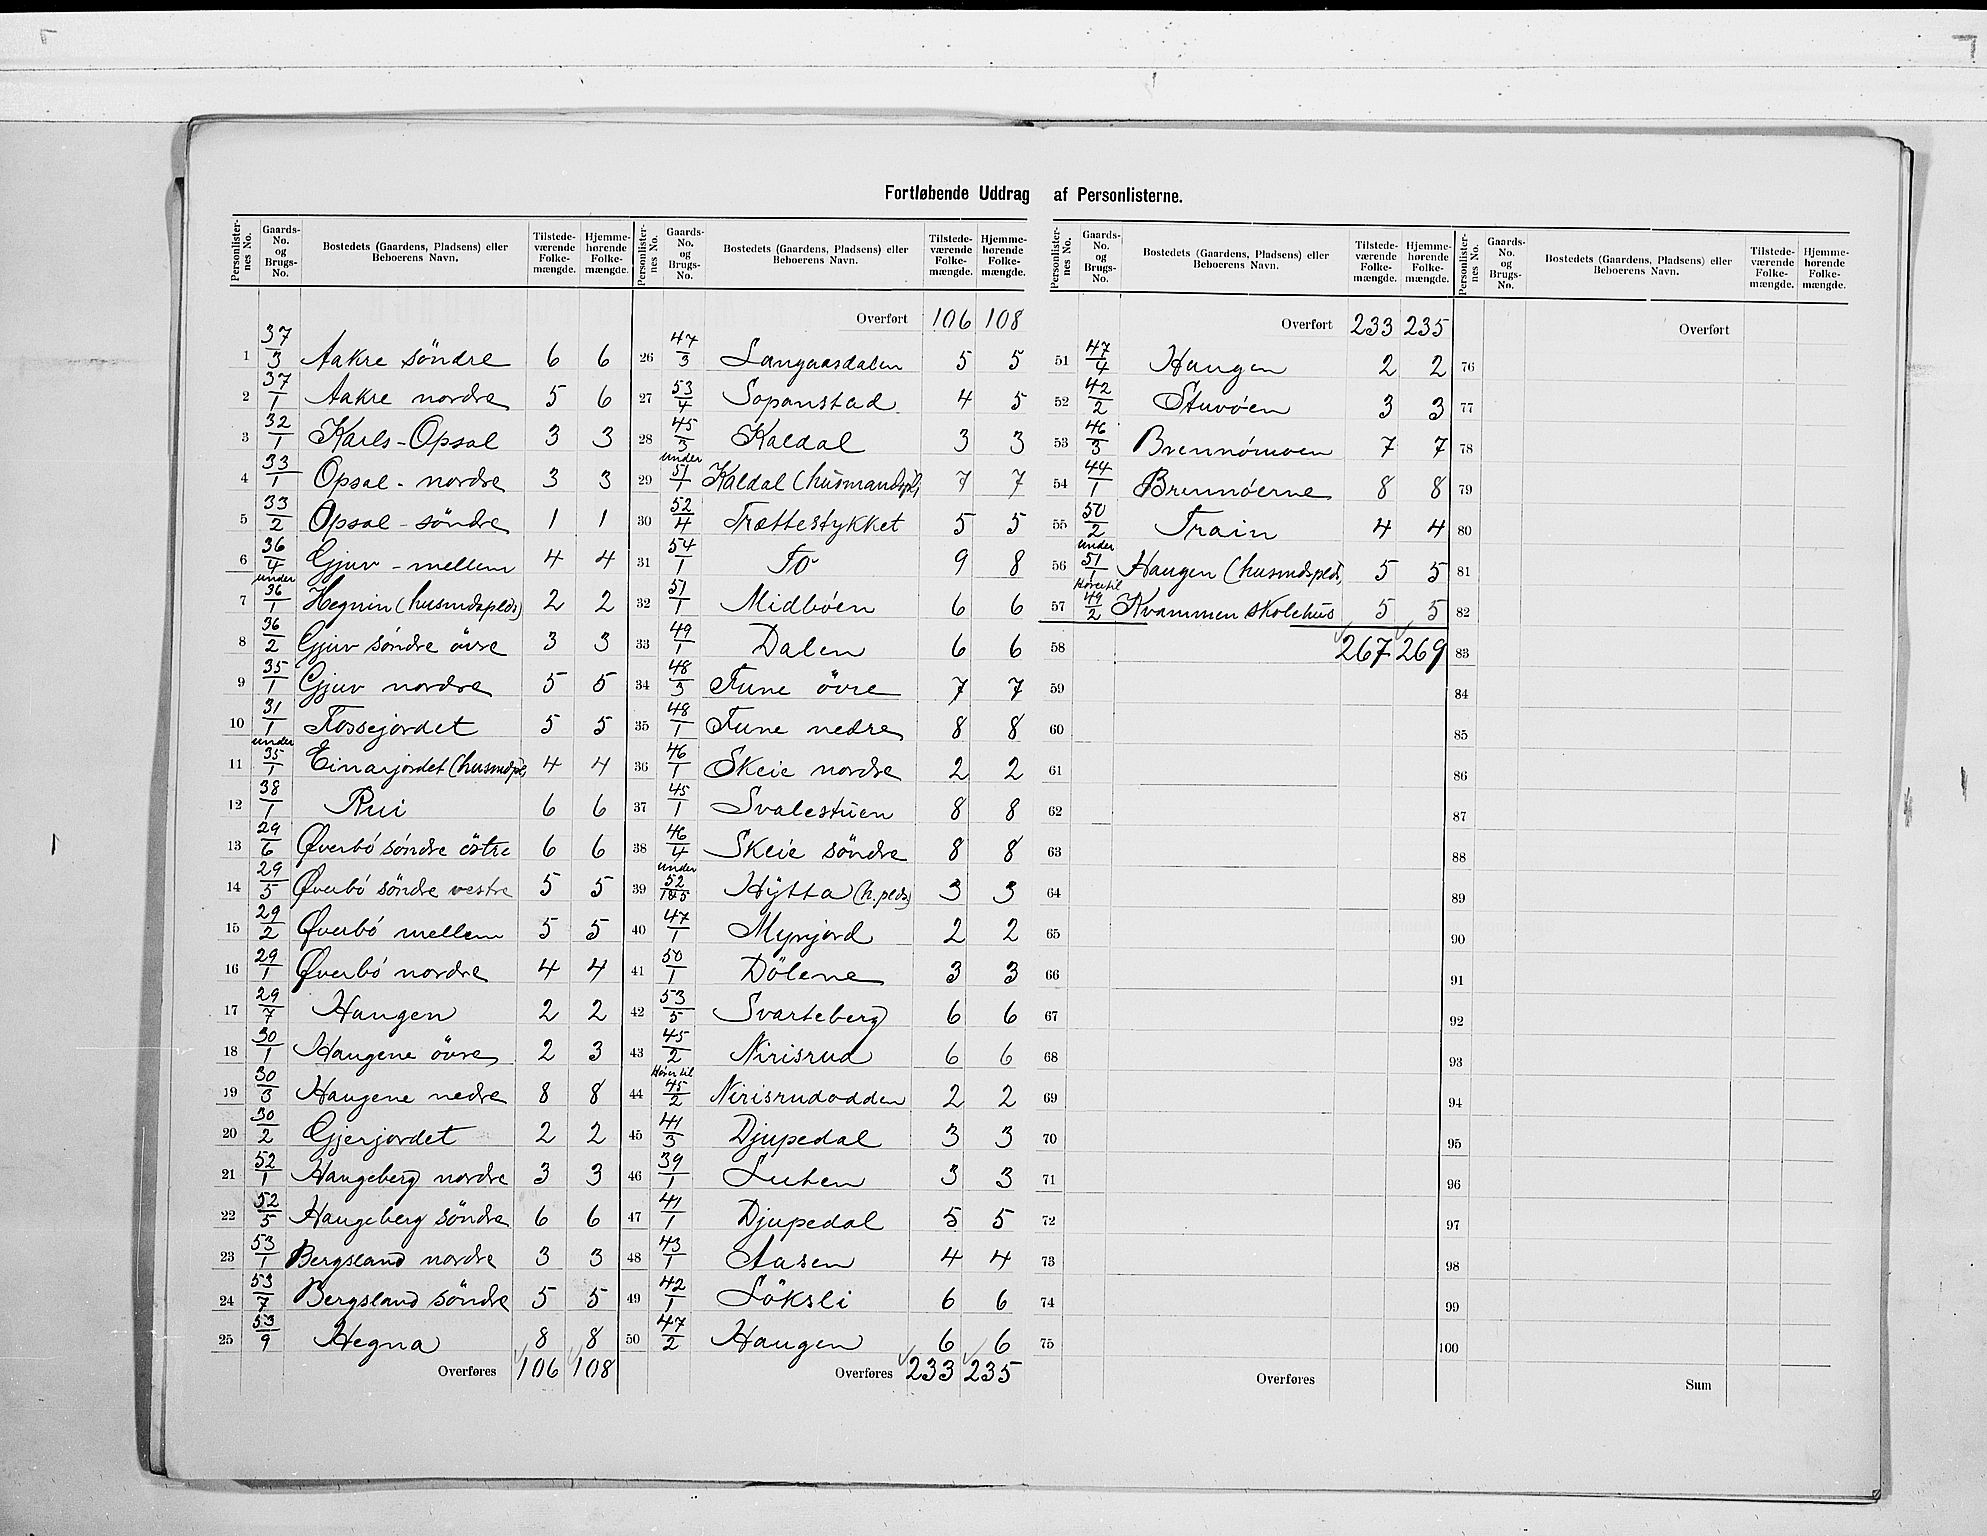 Fortløbende Uddrag af Personlisterne.
Personlister-nes No. | Gaards-No. og Brugs-No. | Bostedets (Gaardens, Pladsens) eller Beboerens Navn. | Tilstede-værende Folke-mængde. | Hjemme-hørende Folke-mængde.
1 37/3 Aakre söndre 6 6
2 37/1 Aakre nordre 5 6
3 32/1 Karls-Opsal 3 3
4 33/1 Opsal - nordre 3 3
5 33/2 Opsal - söndre 1 1
6 36/4 Gjuv - mellem 4 4
7 under 36/1 Hegnin (husmdsplds) 2 2
8 36/2 Gjuv söndre övre 3 3
9 35/1 Gjuv nordre 5 5
10 31/1 Fossejordet 5 5
11 under 35/1 Einarjordet (husmdspl) 4 4
12 38/1 Rui 6 6
13 29/6 Øverbó söndre östre 6 6
14 29/5 Øverbó söndre vestre 5 5
15 29/2 Øverbó mellem 5 5
16 29/1 Øverbó nordre 4 4
17 29/7 Haugen 2 2
18 30/1 Haugene övre 2 3
19 30/3 Haugene nedre 8 8
20 30/2 Gjerjordet 2 2
21 52/1 Haugeberg nordre 3 3
22 52/5 Haugeberg söndre 6 6
23 53/1 Bergsland nordre 3 3
24 53/7 Bergsland söndre 5 5
25 53/9 Hegna 8 8
Overføres 106 108
Personlister-nes No. | Gaards-No. og Brugs-No. | Bostedets (Gaardens, Pladsens) eller Beboerens Navn. | Tilstede-værende Folke-mængde. | Hjemme-hørende Folke-mængde.
Overført 106 108
26 47/3 Langaasdalen 5 5
27 53/4 Sopanstad 4 5
28 45/3 Kaldal 3 3
29 under 51/1 Kaldal (husmandspl) 7 7
30 52/4 Trættestykket 5 5
31 54/1 To 9 8
32 51/1 Midböen 6 6
33 49/1 Dalen 6 6
34 48/3 Tune övre 7 7
35 48/1 Tune nedre 8 8
36 46/1 Skeie nordre 2 2
37 45/1 Svalestuen 8 8
38 46/4 Skeie söndre 8 8
39 under 52/1&5 Hytta (h.plds) 3 3
40 47/1 Myrjord 2 2
41 50/1 Dölene 3 3
42 53/5 Svarteberg 6 6
43 45/2 Nirisrud 6 6
44 Hører til 45/2 Nirisrudodden 2 2
45 41/3 Djupedal 3 3
46 39/1 Luten 3 3
47 41/1 Djupedal 5 5
48 43/1 Aasen 4 4
49 42/1 Löksli 6 6
50 47/2 Haugen 6 6
Overføres 233 235
Personlister-nes No. | Gaards-No. og Brugs-No. | Bostedets (Gaardens, Pladsens) eller Beboerens Navn. | Tilstede-værende Folke-mængde. | Hjemme-hørende Folke-mængde.
Overført 233 235
51 47/4 Haugen 2 2
52 42/2 Stuvöen 3 3
53 46/3 Brennömoen 7 7
54 44/1 Brennöerne 8 8
55 50/2 Train 4 4
56 under 51/1 Haugen (husmdsplds) 5 5
57 Hører til 49/2 Kvammen skolehus 5 5
58 267 269
59
60
61
62
63
64
65
66
67
68
69
70
71
72
73
74
75
Overføres
Personlister-nes No. | Gaards-No. og Brugs-No. | Bostedets (Gaardens, Pladsens) eller Beboerens Navn. | Tilstede-værende Folke-mængde. | Hjemme-hørende Folke-mængde.
Overført
76
77
78
79
80
81
82
83
84
85
86
87
88
89
90
91
92
93
94
95
96
97
98
99
100
Sum